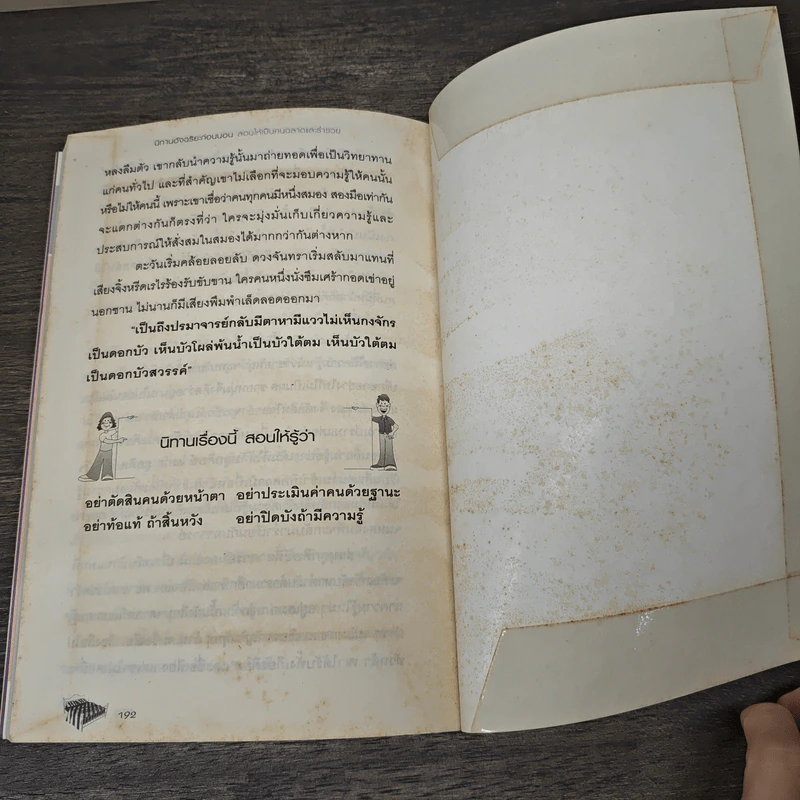 นิทานอัจฉริยะก่อนนอน สอนให้เป็นคนฉลาดและร่ำรวย
หลงลืมตัว เขากลับนำความรู้นั้นมาถ่ายทอดเพื่อเป็นวิทยาทาน
แก่คนทั่วไป และที่สำคัญเขาไม่เลือกที่จะมอบความรู้ให้คนนั้น
หรือไม่ให้คนนี้ เพราะเขาเชื่อว่าคนทุกคนมีหนึ่งสมอง สองมือเท่ากัน
จะแตกต่างกันก็ตรงที่ว่า ใครจะมุ่งมั่นเก็บเกี่ยวความรู้และ
ประสบการณ์ให้สั่งสมในสมองได้มากกว่ากันต่างหาก
ตะวันเริ่มคล้อยลอยลับ ดวงจันทราเริ่มสลับมาแทนที่
เสียงจิ้งหรีดเรไรร้องรับขับขาน ใครคนหนึ่งนั่งซึมเศร้ากอดเข่าอยู่
นอกชาน ไม่นานก็มีเสียงพึมพำเล็ดลอดออกมา
"เป็นถึงปรมาจารย์กลับมีตาหามีแววไม่เห็นกงจักร
เป็นดอกบัว เห็นบัวโผล่พ้นน้ำเป็นบัวใต้ตม เห็นบัวใต้ตม
เป็นดอกบัวสวรรค์"
นิทานเรื่องนี้ สอนให้รู้ว่า
อย่าตัดสินคนด้วยหน้าตา อย่าประเมินค่าคนด้วยฐานะ
อย่าท้อแท้ ถ้าสิ้นหวัง อย่าปิดบังถ้ามีความรู้
192